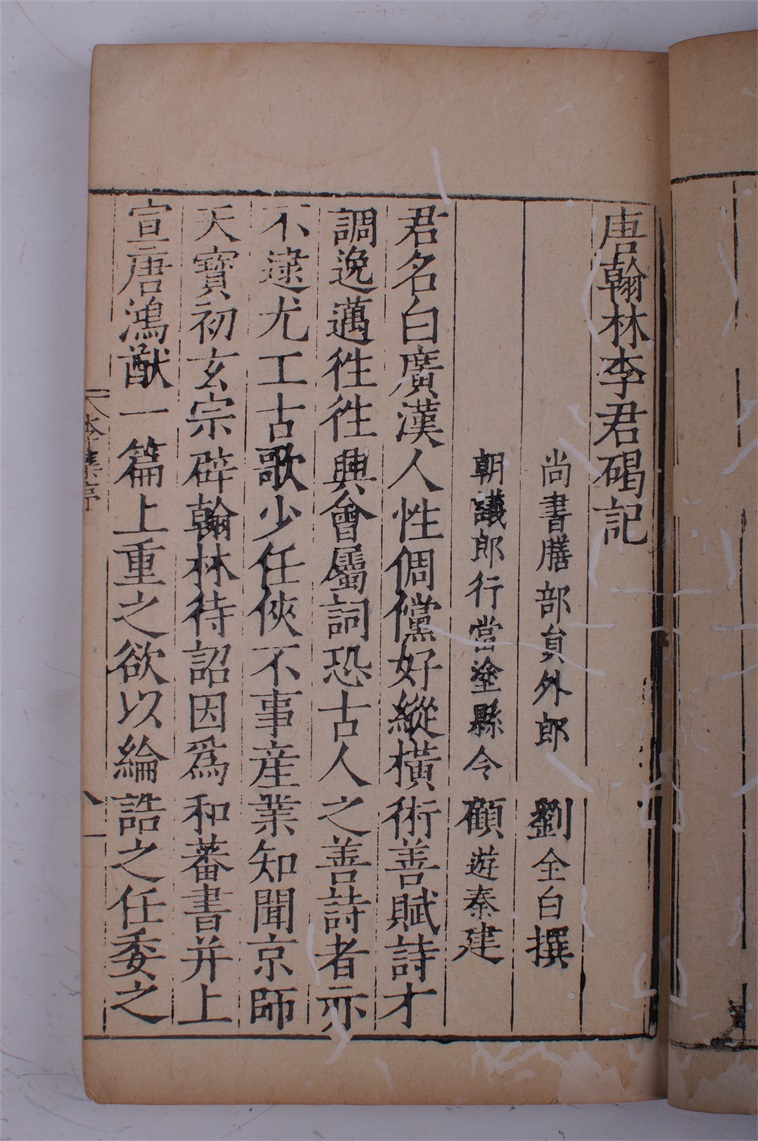 唐翰林李君碣記
尚書膳部貟外郎 劉全白撰
朝議郎行當塗縣令 顧遊秦建
君名白廣漢人性倜儻好縱橫術善賦詩才
調逸邁徃徃興會屬詞恐古人之善詩者亦
不逮尤工古歌少任俠不事産業知聞京師
天寶初玄宗辟翰林待詔因爲和蕃書并上
宣唐鴻猷一篇上重之欲以綸誥之任委之